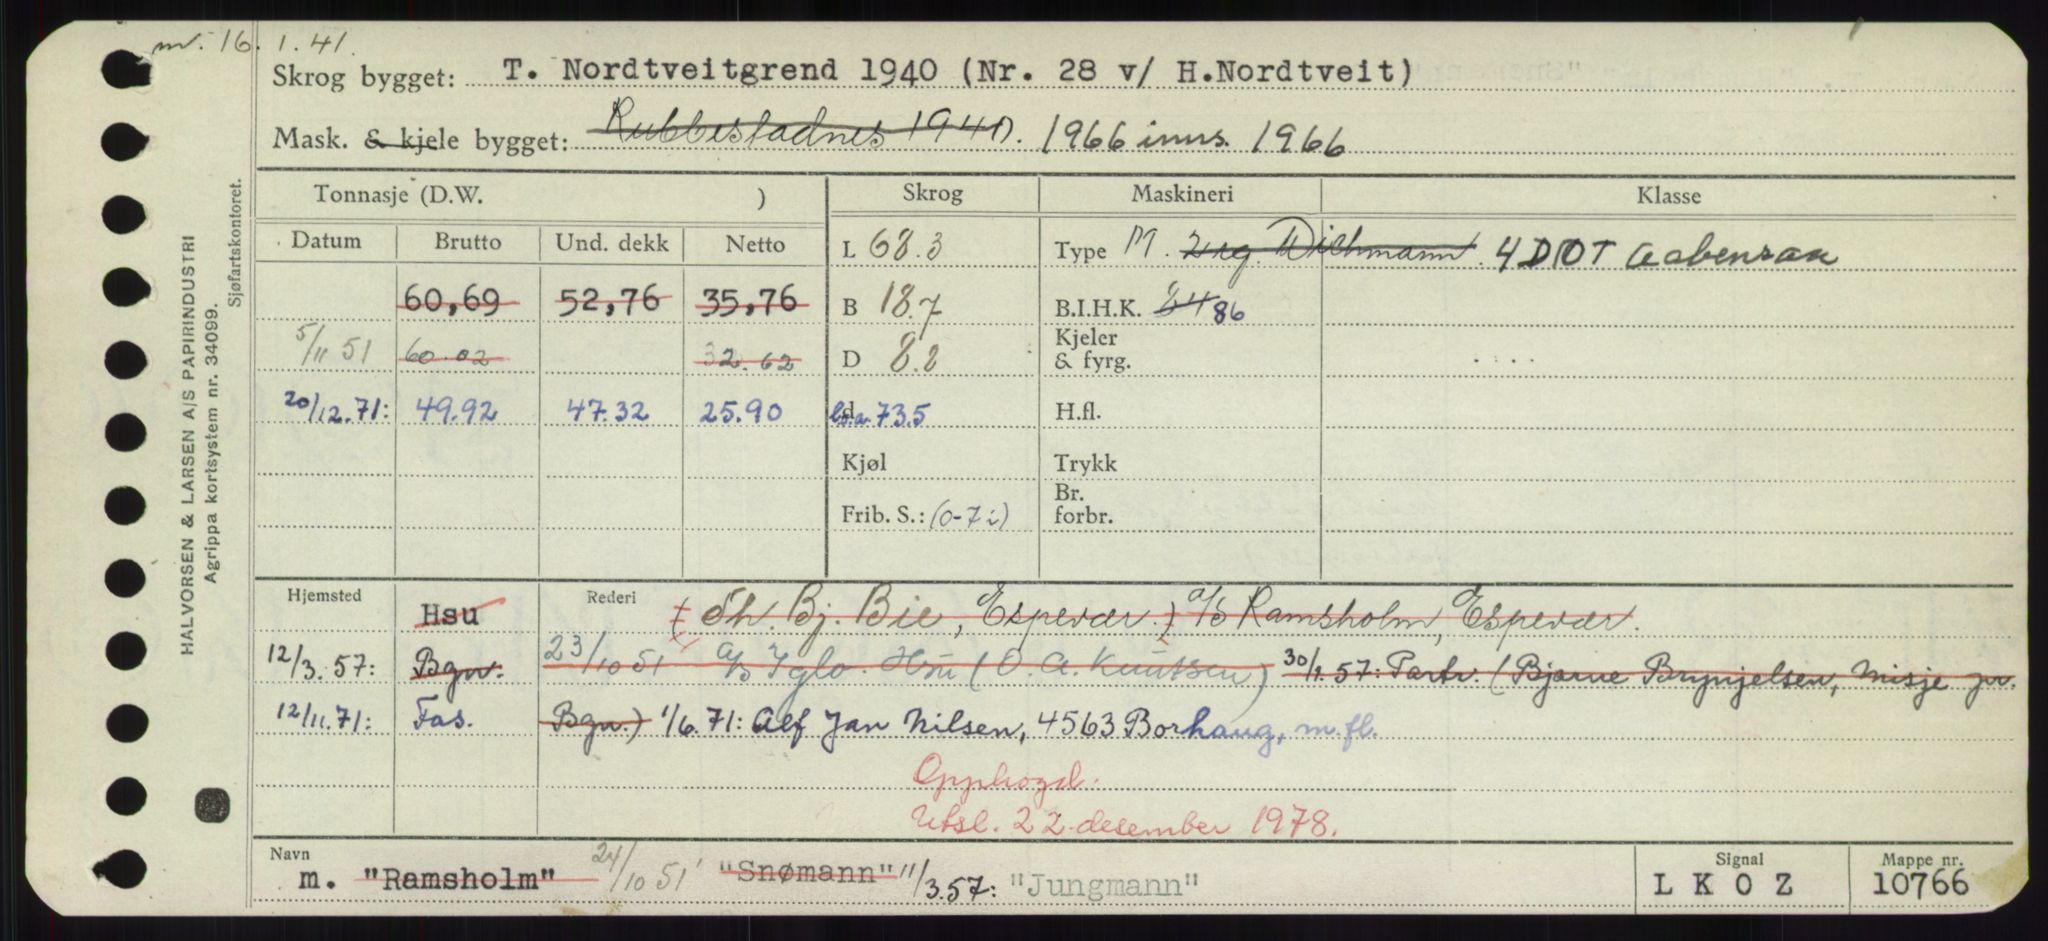 mv. 16.1.41.
Skrog bygget: T. Nordtveitgrend 1940 (Nr. 28 v/ H.Nordtveit)
Mask. & kjele bygget: Rubbestadnes 1940. 1966 inns. 1966
Tonnasje (D.W. ) Skrog Maskineri Klasse
Datum Brutto Und. dekk Netto L 68.3 Type M. 2 syl. Wichmann. 4 DIOT Aabenraa
60,69 52,76 35,76 B 18.7 B.I.H.K. 84 86
5/11 51 60.02 32.62 D 8.2 Kjeler & fyrg.
20/12.71: 49.92 47.32 25.90 d l.o.a. 73.5 H.fl.
Kjøl Trykk
Frib. S.: (0-7i) Br. forbr.
Hjemsted Hsu Rederi (Th. Bj. Bie, Espevær.) A/S Ramsholm, Espevær.
12/3.57: Bgn. 23/10 51 A/S Iglo. Hsu (O. A. Knutsen) 30/1.57: Partr. (Bjarne Brynjelsen, Misje pr.
12/11.71: Fas. Bgn.) 1/6.71: Alf Jan Nilsen, 4563 Borhaug, m.fl.
Opphogd.
Utsl. 22 desember 1978.
Navn Signal Mappe nr.
m. "Ramsholm" 24/10 51 "Snømann" 11/3.57: "Jungmann" L K O Z 10766
HALVORSEN & LARSEN A/S PAPIRINDUSTRI
Agrippa kortsystem nr. 34099.
Sjøfartskontoret.